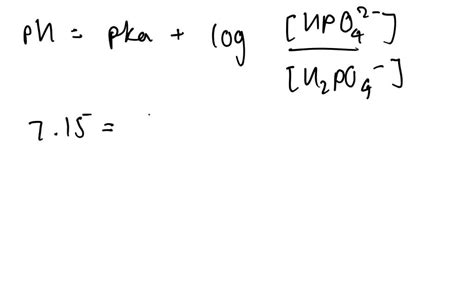 pH = pka + log [HPO₄²⁻] / [H₂PO₄⁻]
7.15 =